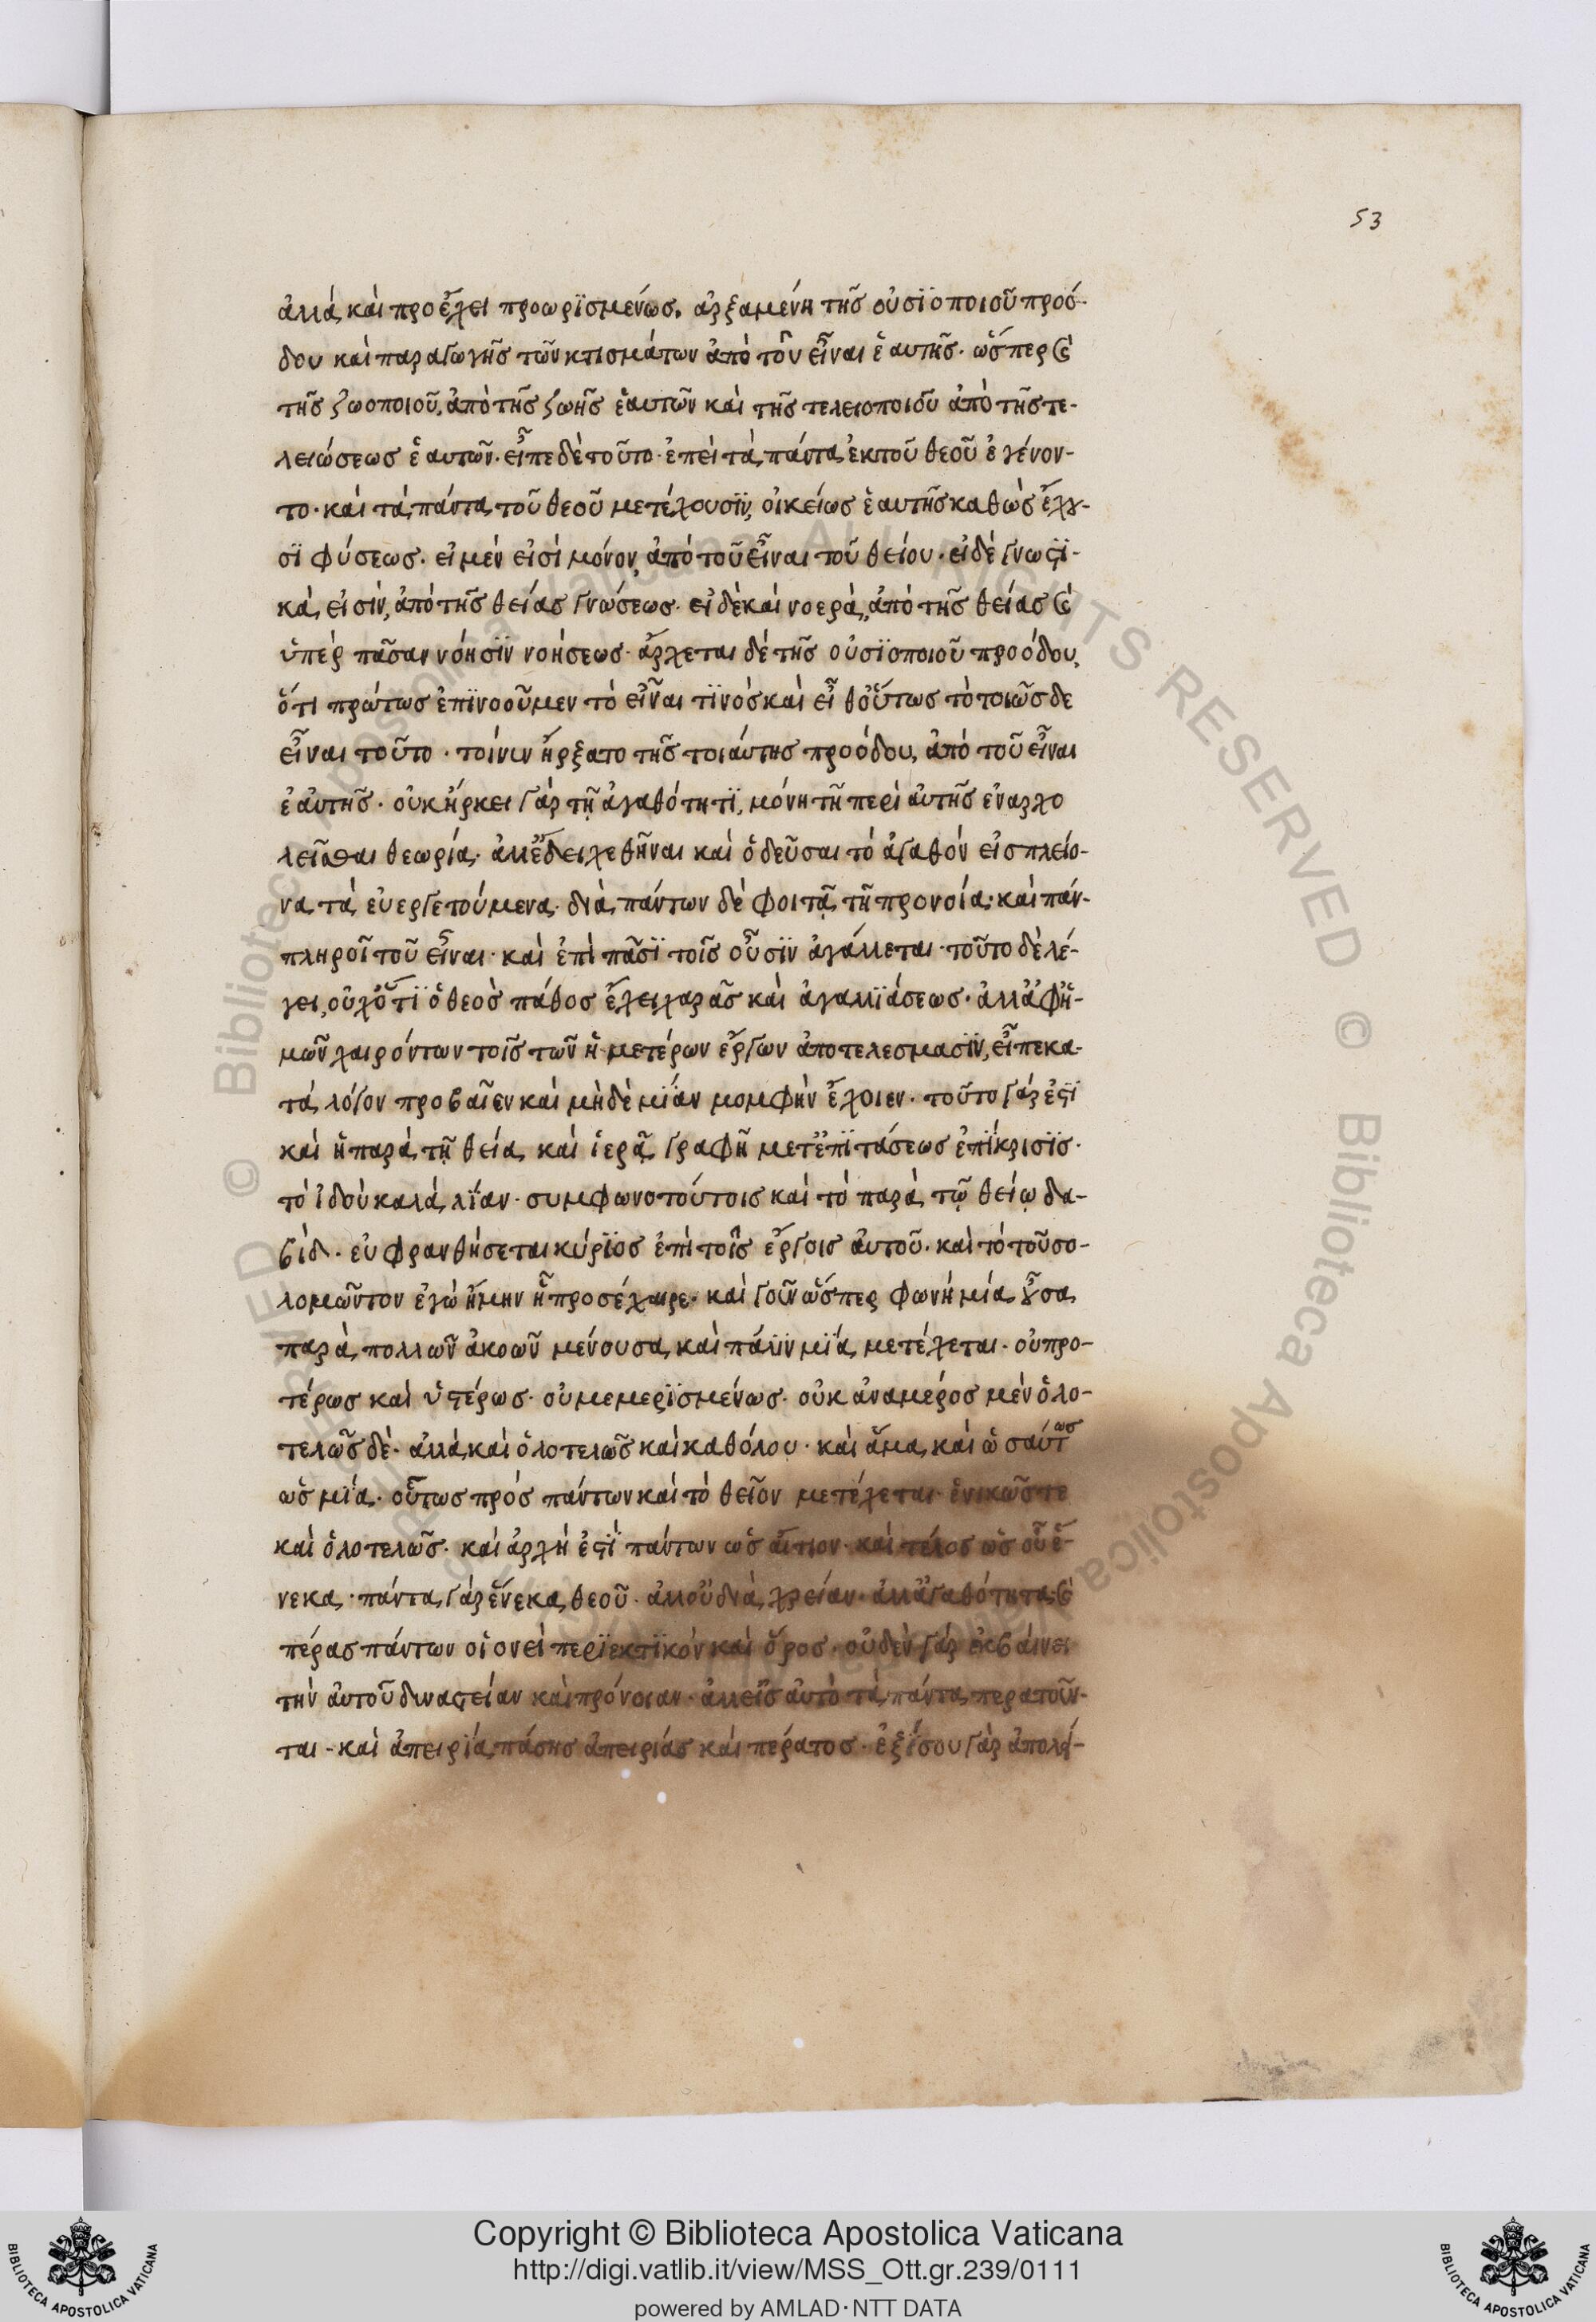 53
ἀλλὰ καὶ προέχει προωρϊσμένως. ἀρξαμένη τῆς οὐσϊοποιοῦ προό-
δου καὶ παραγωγῆς τῶν κτισμάτων ἀπὸ τοῦ εἶναι ἑαυτῆς· ὥσπερ καὶ
τῆς ζωοποιοῦ, ἀπὸ τῆς ζωῆς ἑαυτῶν καὶ τῆς τελειοποιοῦ ἀπὸ τῆς τε-
λειώσεως ἑαυτῶν. εἶπε δὲ τοῦτο· ἐπεὶ τὰ πάντα ἐκ τοῦ θεοῦ ἐγένον-
το· καὶ τὰ πάντα τοῦ θεοῦ μετέχουσϊν, οἰκείως ἑαυτῆς καθὼς ἔχου-
σϊ φύσεως. εἰ μὲν εἰσὶ μόνον, ἀπὸ τοῦ εἶναι τοῦ θείου· εἰ δὲ γνωστϊ-
κά εἰσιν, ἀπὸ τῆς θείας γνώσεως· εἰ δὲ καὶ νοερὰ, ἀπὸ τῆς θείας καὶ
ὑπὲρ πᾶσαν νόησϊν νοήσεως· ἄρχεται δὲ τῆς οὐσϊοποιοῦ προόδου,
ὅτι πρώτως ἐπϊνοοῦμεν τὸ εἶναι τϊνὸς καὶ εἶθ οὕτως τὸ τοιῶσδε
εἶναι τοῦτο · τοίνυν ἤρξατο τῆς τοιαύτης προόδου, ἀπὸ τοῦ εἶναι
ἑαὐτῆς· οὐκ ἤρκει γὰρ τῇ ἀγαθότητϊ, μόνη τῇ περὶ αὐτῆς ἐναρχο
λεῖσθαι θεωρία· ἀλλ ἔδει χεθῆναι καὶ ὁδεῦσαι τὸ ἀγαθόν εἰς πλείο-
να τὰ εὐεργετούμενα· διὰ πάντων δὲ φοιτᾷ τῇ προνοία· καὶ πάν-
πληροῖ τοῦ εἶναι· καὶ ἐπὶ πᾶσϊ τοῖς οὖσϊν ἀγάλλεται· τοῦτο δὲ λέ-
γει, οὐχ ὅτϊ ὁ θεὸς πάθος ἔχει χαρᾶς καὶ ἀγαλλϊάσεως· ἀλλ ἀφ ἡ-
μῶν χαιρόντων τοῖς τῶν ἡμετέρων ἔργων ἀποτελεσμασϊν, εἶπε κα-
τὰ λόγον προβαῖεν καὶ μὴδὲ μϊάν μομφὴν ἔχοιεν· τοῦτο γάρ ἐστϊ
καὶ ἡ παρὰ τῇ θεία καὶ ἱερᾷ γραφῇ μετ ἐπϊτάσεως ἐπϊκρισϊς·
τὸ ἰδοὺ καλὰ λϊαν· συμφωνο τούτοις καὶ τὸ παρὰ τῷ θείῳ δα-
βίδ· εὐφρανθήσεται κύρϊος ἐπὶ τοῖς ἔργοις αὐτοῦ· καὶ τὸ τοῦ σο-
λομῶντον ἐγὼ ἤμην ᾗ προσέχαιρε· καὶ γοῦν ὥσπερ φωνή μία οὖσα
παρὰ πολλῶν ἀκοῶν μένουσα καὶ πάλϊν μϊά μετέχεται· οὐ προ-
τέρως καὶ ὑστέρως· οὐ μεμερϊσμένως· οὐκ ἀναμερὸς μὲν ὁλο-
τελῶς δὲ· ἀλλὰ καὶ ὁλοτελῶς καὶ καθόλου· καὶ ἅμα καὶ ὡσαύτως
ὡς μϊά· οὕτως πρὸς πάντων καὶ τὸ θεῖον μετέχεται· ἑνικῶς τε
καὶ ὁλοτελῶς· καὶ ἀρχή ἐστϊ πάντων ὡς αἴτιον· καὶ τέλος ὡς οὗ ἕ-
νεκα· πάντα γὰρ ἕνεκα θεοῦ· ἀλλ οὐ διὰ χρείαν· ἀλλ ἀγαθότητα· καὶ
πέρας πάντων οἱονεὶ περϊεκτϊκὸν καὶ ὅρος· οὐδὲν γὰρ ἐκβαίνει
τὴν αὐτοῦ δυναστείαν καὶ πρόνοιαν· ἀλλ εἰς αὐτὸ τὰ πάντα περατοῦν-
ται - καὶ ἀπειρϊά πάσης ἀπειριάς καὶ πέρατος· ἐξίσου γὰρ ἀπολή-
Copyright © Biblioteca Apostolica Vaticana
http://digi.vatlib.it/view/MSS_Ott.gr.239/0111
powered by AMLAD·NTT DATA